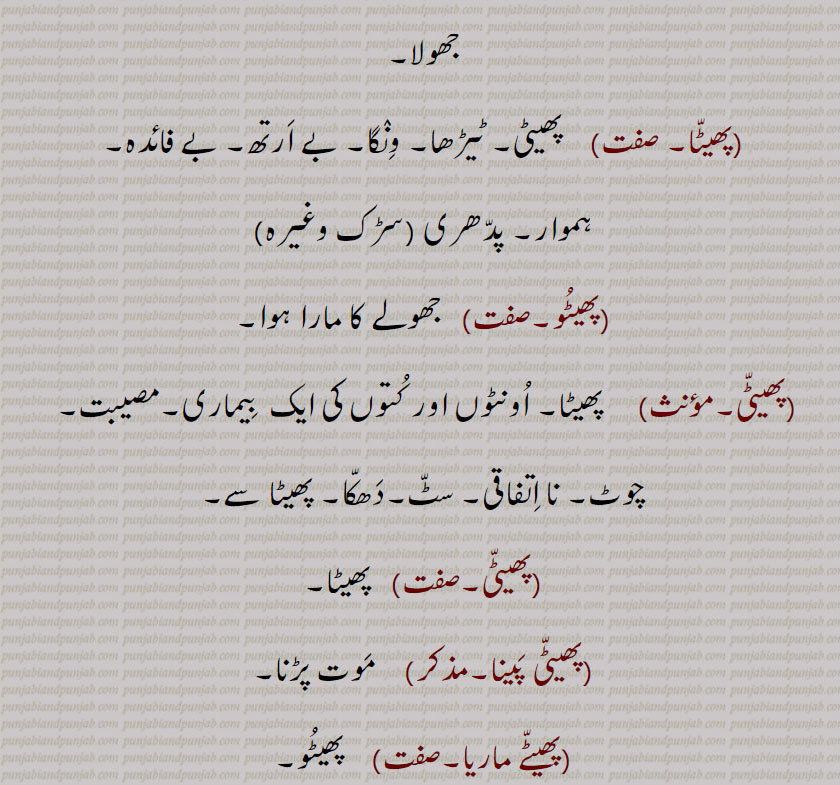 جھولا۔
(پھیٹّا۔ صفت) پھیٹی۔ ٹیڑھا۔ وِنٛگا۔ بے اَرتھ۔ بے فائدہ۔
ہموار۔ پدّھری (سڑک وغیرہ)
(پھیٹُو۔صفت) جھولے کا مارا ہوا۔
(پھیٹّی۔مؤنث) پھیٹا۔ اُونٹوں اور کُتوں کی ایک بِیماری۔مصیبت۔
چوٹ۔ نااِتفاقی۔ سٹّ۔دَھکّا۔ پھیٹا سے۔
(پھیٹّی۔صفت) پھیٹا۔
(پھیٹّی پَینا۔مذکر) مَوت پڑنا۔
(پھیٹّے ماریا۔صفت) پھیٹُو۔